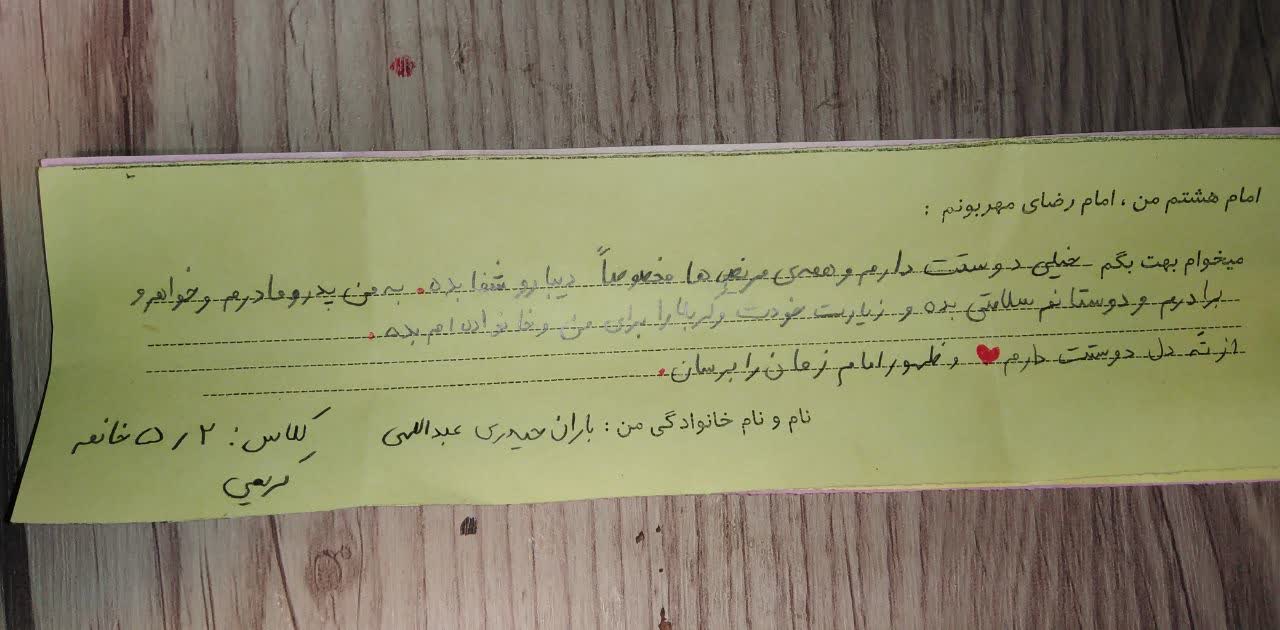 امام هشتم من ، امام رضای مهربونم :
میخوام بهت بگم خیلی دوستت دارم و همه‌ی مریض ها مخصوصاً دیبا رو شفا بده. به من پدر و مادرم و خواهر و
برادرم و دوستانم سلامتی بده و زیارت خودت و کربلا را برای من و خانواده ام بده.
از ته دل دوستت دارم ♥ و ظهور امام زمان را برسان.
نام و نام خانوادگی من : باران حیدری عبداللهی
کلاس : ۲ / ۵ خانم
کریمی